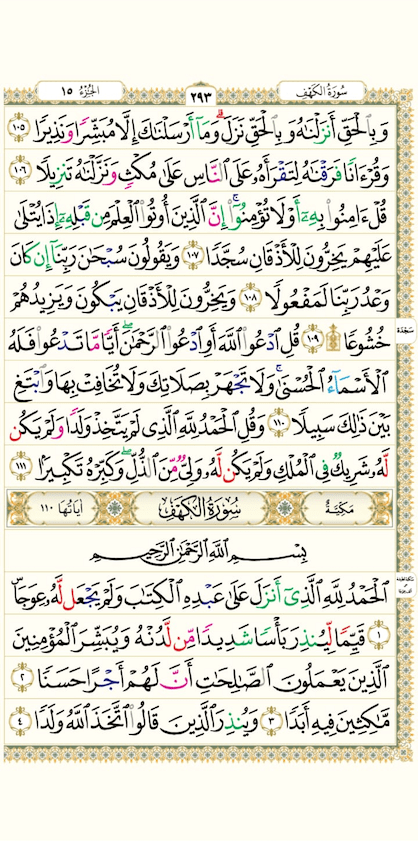 سُورَةُ الكَهْفِ ٢٩٣ الجُزْءُ ١٥
وَبِٱلْحَقِّ أَنزَلْنَٰهُ وَبِٱلْحَقِّ نَزَلَ ۗ وَمَآ أَرْسَلْنَٰكَ إِلَّا مُبَشِّرًا وَنَذِيرًا ١٠٥
وَقُرْءَانًا فَرَقْنَٰهُ لِتَقْرَأَهُۥ عَلَى ٱلنَّاسِ عَلَىٰ مُكْثٍ وَنَزَّلْنَٰهُ تَنزِيلًا ١٠٦
قُلْ ءَامِنُوا۟ بِهِۦٓ أَوْ لَا تُؤْمِنُوٓا۟ ۚ إِنَّ ٱلَّذِينَ أُوتُوا۟ ٱلْعِلْمَ مِن قَبْلِهِۦٓ إِذَا يُتْلَىٰ
عَلَيْهِمْ يَخِرُّونَ لِلْأَذْقَانِ سُجَّدًا ١٠٧ وَيَقُولُونَ سُبْحَٰنَ رَبِّنَآ إِن كَانَ
وَعْدُ رَبِّنَا لَمَفْعُولًا ١٠٨ وَيَخِرُّونَ لِلْأَذْقَانِ يَبْكُونَ وَيَزِيدُهُمْ
خُشُوعًا ۩ ١٠٩ قُلِ ٱدْعُوا۟ ٱللَّهَ أَوِ ٱدْعُوا۟ ٱلرَّحْمَٰنَ ۖ أَيًّا مَّا تَدْعُوا۟ فَلَهُ
سَجْدَة
ٱلْأَسْمَآءُ ٱلْحُسْنَىٰ ۚ وَلَا تَجْهَرْ بِصَلَاتِكَ وَلَا تُخَافِتْ بِهَا وَٱبْتَغِ
بَيْنَ ذَٰلِكَ سَبِيلًا ١١٠ وَقُلِ ٱلْحَمْدُ لِلَّهِ ٱلَّذِى لَمْ يَتَّخِذْ وَلَدًا وَلَمْ يَكُن
لَّهُۥ شَرِيكٌ فِى ٱلْمُلْكِ وَلَمْ يَكُن لَّهُۥ وَلِىٌّ مِّنَ ٱلذُّلِّ ۖ وَكَبِّرْهُ تَكْبِيرًۢا ١١١
مَكِيَّة سُورَةُ الكَهْفِ آيَاتُهَا ١١٠
بِسْمِ ٱللَّهِ ٱلرَّحْمَٰنِ ٱلرَّحِيمِ
ٱلْحَمْدُ لِلَّهِ ٱلَّذِىٓ أَنزَلَ عَلَىٰ عَبْدِهِ ٱلْكِتَٰبَ وَلَمْ يَجْعَل لَّهُۥ عِوَجَاۜ
١ قَيِّمًا لِّيُنذِرَ بَأْسًا شَدِيدًا مِّن لَّدُنْهُ وَيُبَشِّرَ ٱلْمُؤْمِنِينَ
ٱلَّذِينَ يَعْمَلُونَ ٱلصَّٰلِحَٰتِ أَنَّ لَهُمْ أَجْرًا حَسَنًا ٢
مَّٰكِثِينَ فِيهِ أَبَدًا ٣ وَيُنذِرَ ٱلَّذِينَ قَالُوا۟ ٱتَّخَذَ ٱللَّهُ وَلَدًا ٤